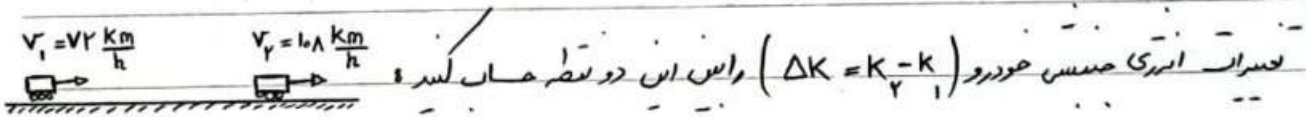 تغییرات انرژی جنبشی خودرو (ΔK = K₂ - K₁) را بین این دو نقطه حساب کنید :
V₁ = ۷۲ km/h
V₂ = ۱۰۸ km/h